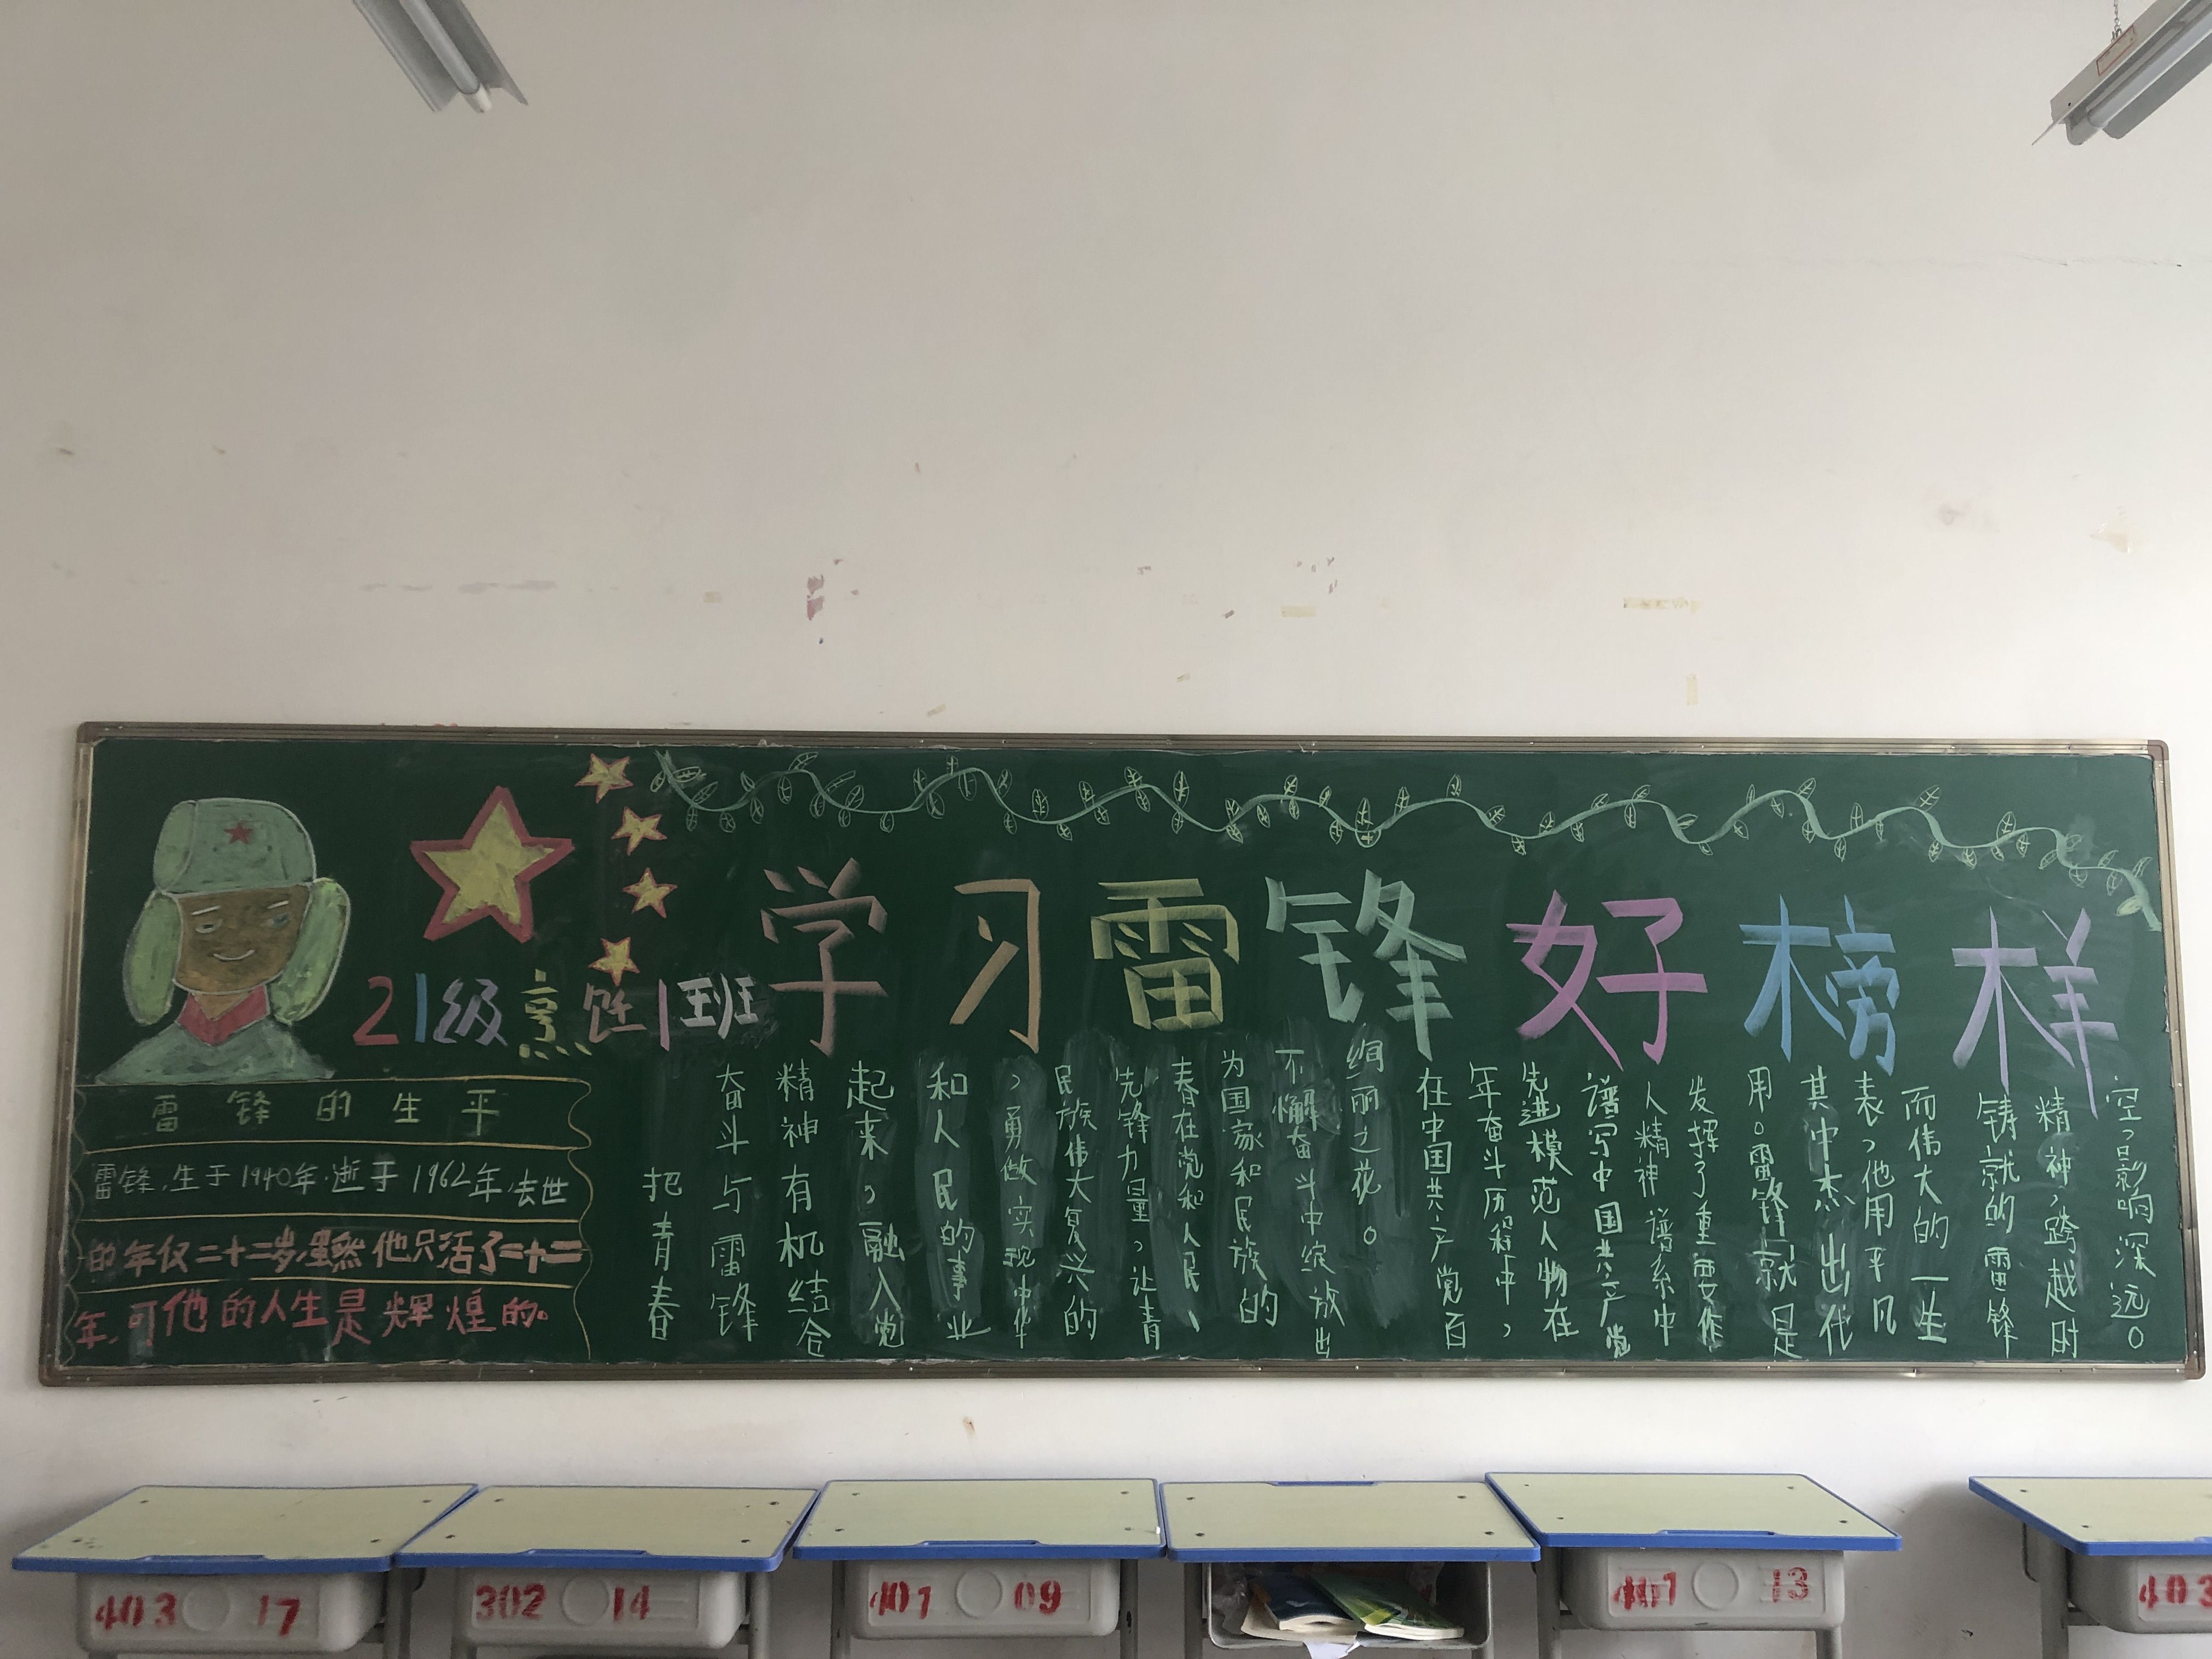 21级烹饪1班
学习雷锋好榜样
雷锋的生平
雷锋,生于1940年.逝于1962年,去世
的年仅二十二岁,虽然他只活了二十二
年,可他的人生是辉煌的。
把青春
奋斗与雷锋
精神有机结合
起来,融入党
和人民的事业
,勇做实现中华
民族伟大复兴的
先锋力量,让青
春在党和人民、
为国家和民族的
不懈奋斗中绽放出
绚丽之花。
在中国共产党百
年奋斗历程中,
先进模范人物在
谱写中国共产党
人精神谱系中
发挥了重要作
用。雷锋就是
其中杰出代
表,他用平凡
而伟大的一生
铸就的雷锋
精神,跨越时
空,影响深远。
403 17
302 14
401 09
401 13
403